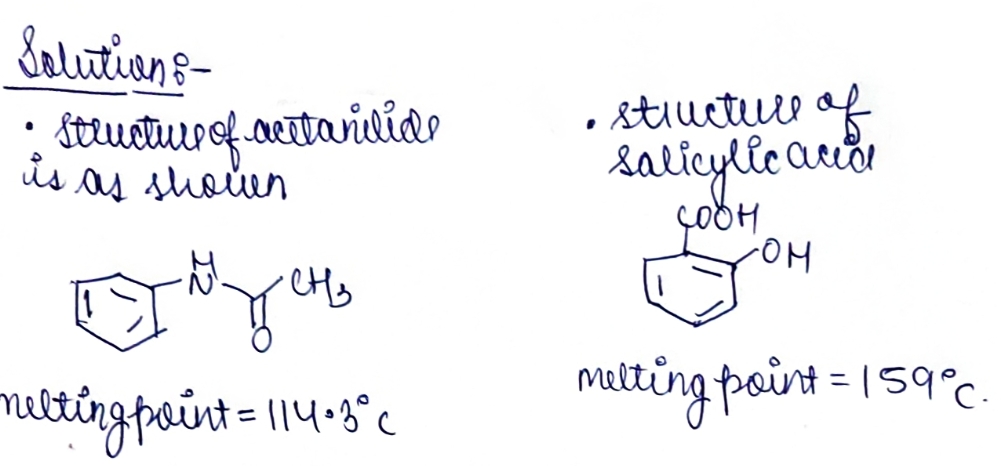 Solution:-
• structure of acetanilide
is as shown
H
N
CH3
O
melting point = 114.3°C
• structure of
salicylic acid
COOH
OH
melting point = 159°C.